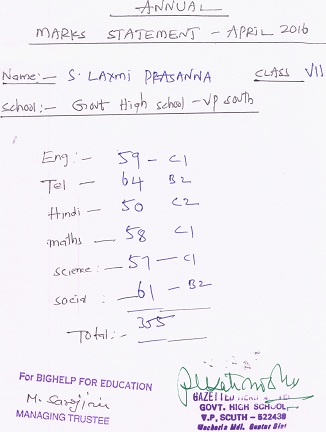 ANNUAL
MARKS STATEMENT - APRIL 2016
Name:- S. LAXMI PRASANNA CLASS VII
School:- Govt High school - VP south
Eng:- 59 - C1
Tel - 64 B2
Hindi - 50 C2
maths - 58 C1
science:- 57 - C1
social : 61 - B2
Total:- 355
For BIGHELP FOR EDUCATION
M. Sarojini
MANAGING TRUSTEE
GAZETTED
GOVT. HIGH SCHOOL
V.P. SOUTH - 522439
Mdl. Guntur Dist